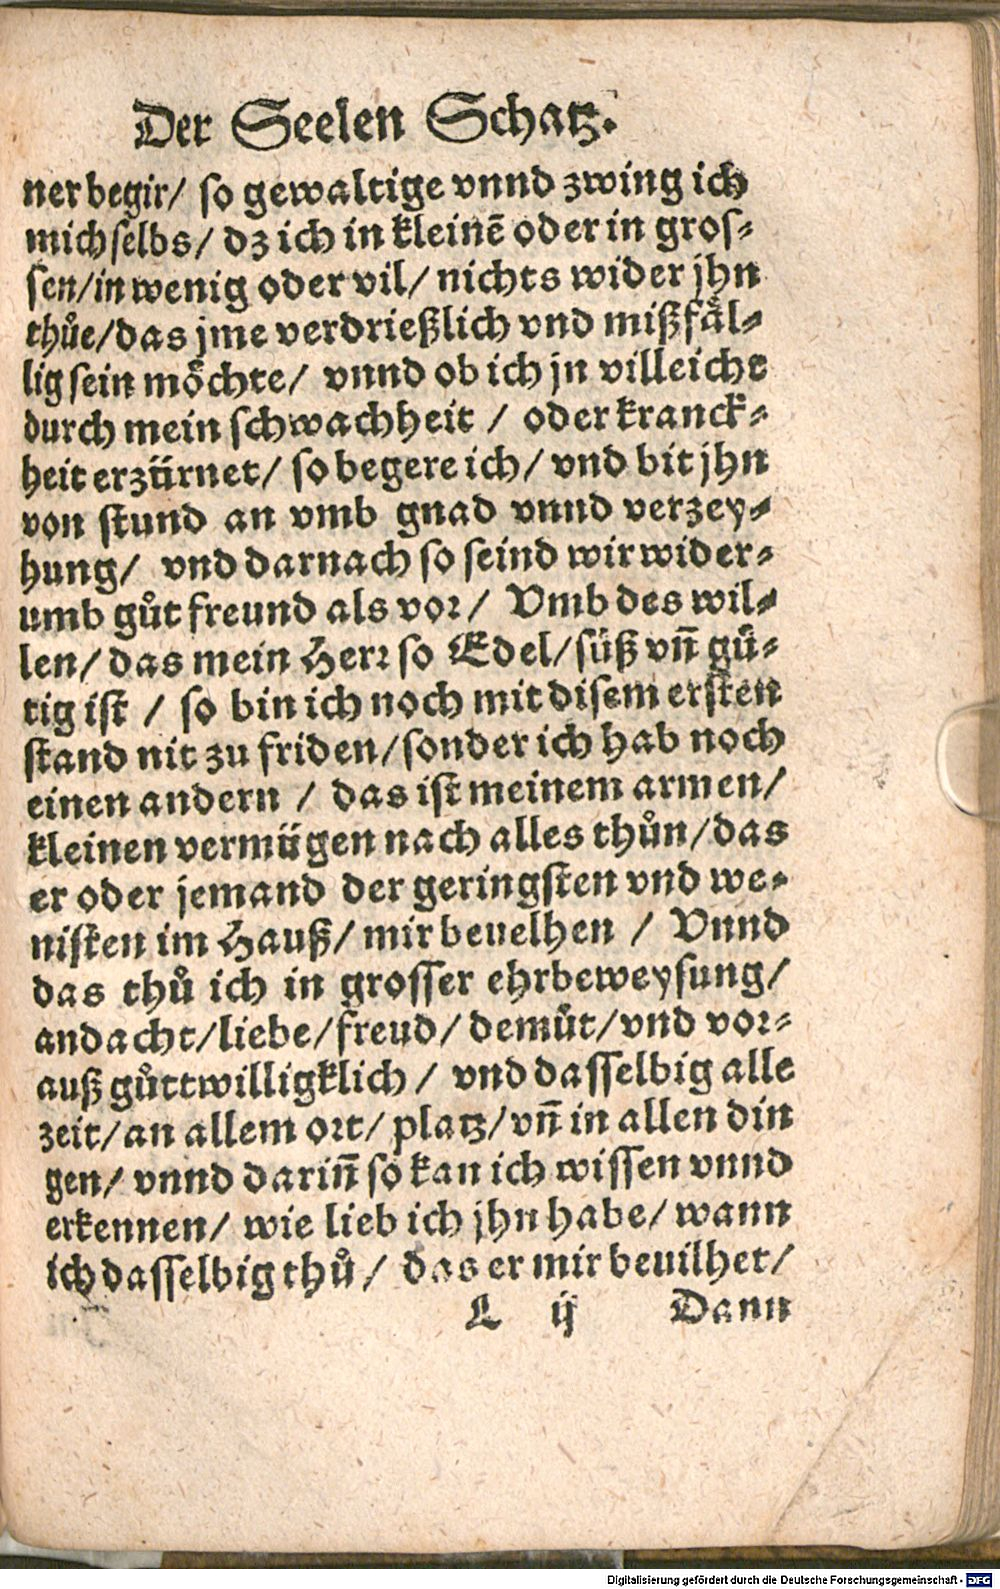 Der Seelen Schatz.
ner begir/ so gewaltige vnnd zwing ich
mich selbs/ dz ich in kleinē oder in gros-
sen/in wenig oder vil/ nichts wider jhn
thůe/das jme verdrießlich vnd mißfäl-
lig sein möchte/ vnnd ob ich jn villeicht
durch mein schwachheit / oder kranck-
heit erzürnet/ so begere ich/ vnd bit jhn
von stund an vmb gnad vnnd verzey-
hung/ vnd darnach so seind wir wider-
umb gůt freund als vor/ Vmb des wil-
len/ das mein Herr so Edel/süß vñ gü-
tig ist / so bin ich noch mit disem ersten
stand nit zu friden/sonder ich hab noch
einen andern / das ist meinem armen/
kleinen vermügen nach alles thůn/das
er oder jemand der geringsten vnd we-
nisten im Hauß/ mir beuelhen / Vnnd
das thů ich in grosser ehrbeweysung/
andacht/liebe/freud/ demůt/vnd vor-
auß gůttwilligklich / vnd dasselbig alle
zeit/an allem ort/ platz/vñ in allen din
gen/ vnnd dariñ so kan ich wissen vnnd
erkennen/ wie lieb ich jhn habe/ wann
ich dasselbig thů/ das er mir beuilhet/
L ij Dann
Digitalisierung gefördert durch die Deutsche Forschungsgemeinschaft - DFG